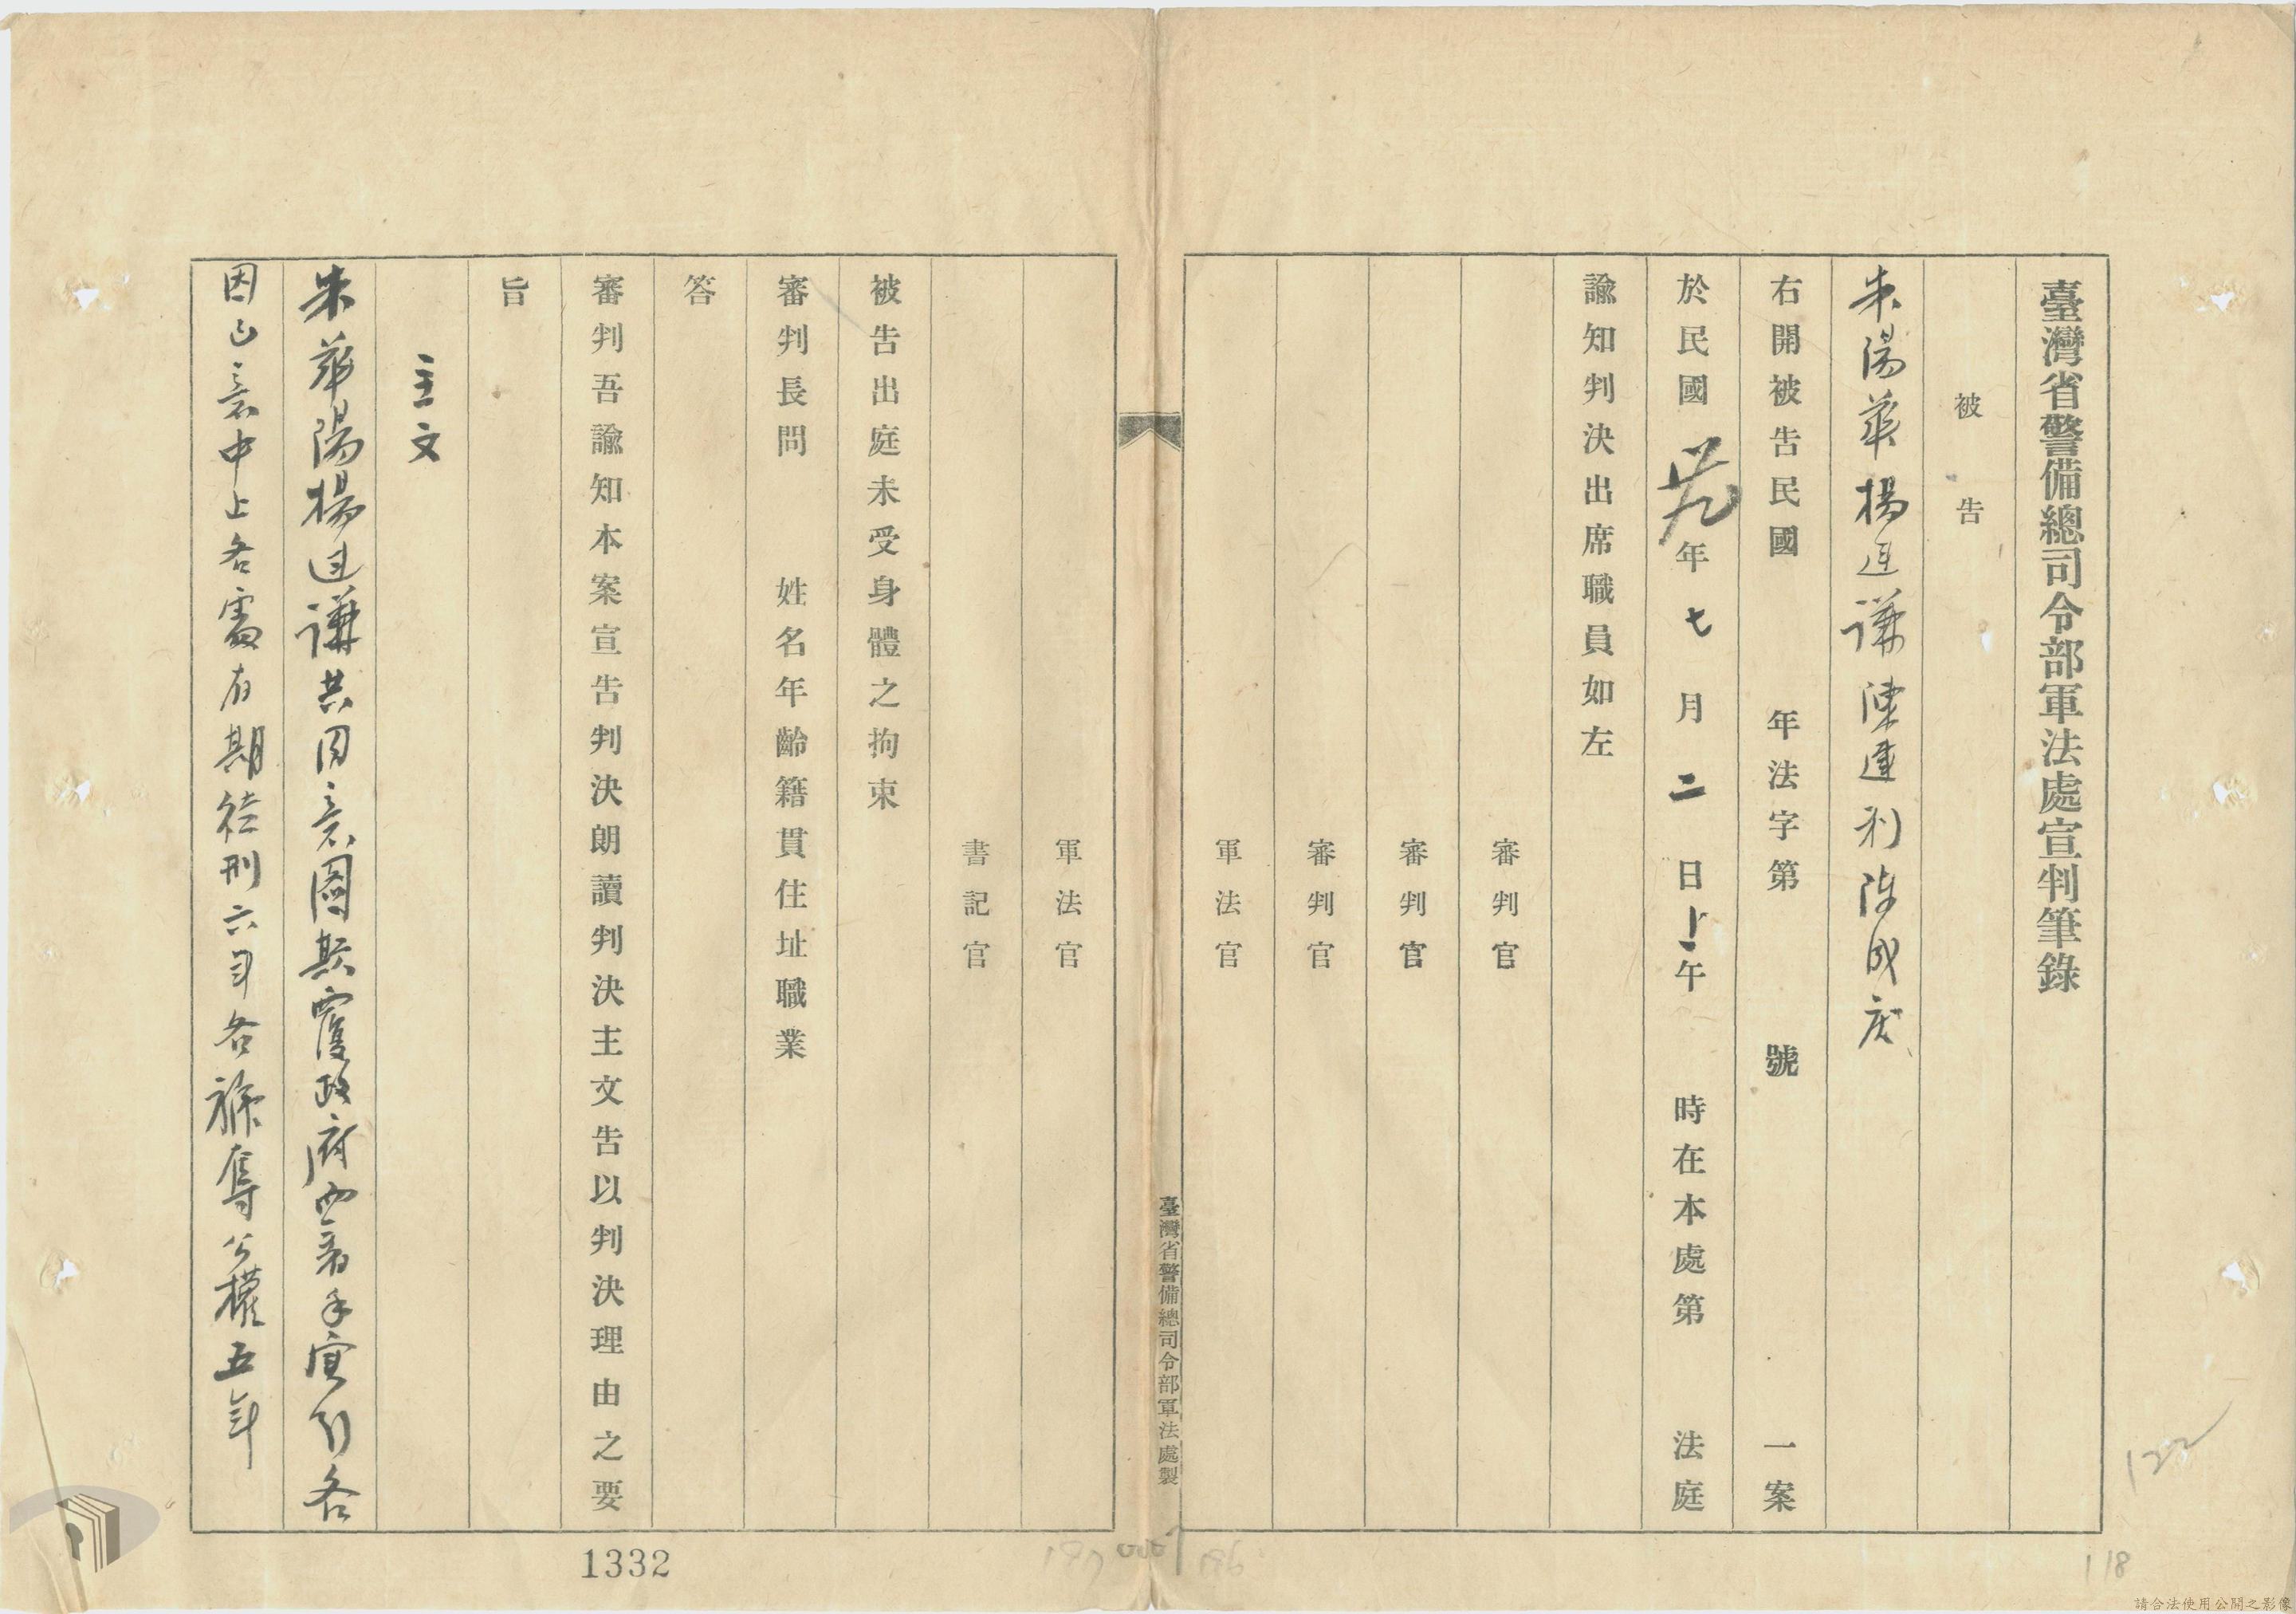 臺灣省警備總司令部軍法處宣判筆錄
被告
朱陽華楊進謙陳運利陳成庚
右開被告民國 年法字第 號 一案
於民國 卅九 年 七 月 二 日 上 午 時在本處第 法庭
諭知判決出席職員如左
審判官
審判官
審判官
軍法官
臺灣省警備總司令部軍法處製
軍法官
書記官
被告出庭未受身體之拘束
審判長問 姓名年齡籍貫住址職業
答
審判吾諭知本案宣告判決朗讀判決主文告以判決理由之要
旨
主文
朱華陽楊進謙共同意圖 覆政府而著手實行各
因 意中止各處有期徒刑六年各褫奪公權五年
1332
197
196
118
122
請合法使用公開之影像